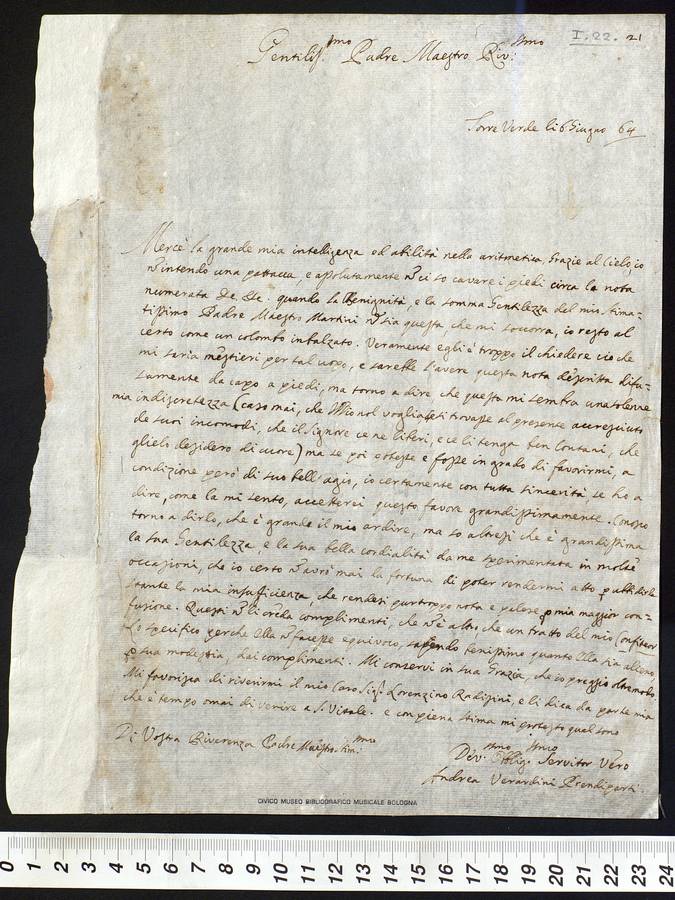 I.22. 21
Gentiliss.mo Padre Maestro Riv.mo
Torre Verde li 6 Giugno 64
Mercè la grande mia intelligenza ed abilità nella aritmetica, Grazie al Cielo, io
intendo una patacca, e assolutamente ci so cavare i piedi circa la nota
numerata &c. &c. quando la Benignità, e la somma Gentilezza del mio Stima-
tissimo Padre Maestro Martini sia questa che mi soccora, io resto al
certo come un colombo imbalzato. Veramente egli è troppo il chiedere ciò che
mi saria mestieri per tal uopo, e sarebbe l'avere questa nota descritta diffu-
samente da capo a piedi, ma torno a dire che questa mi sembra una solenne
mia indiscretezza (caso mai, che Dio nol voglia, si trovasse al presente accresciuto
de suoi incomodi, che il Signore ce ne liberi, e ce li tenga ben lontani, che
glielo desidero di cuore) ma se poi potesse e fosse in grado di favorirmi, a
condizione però di suo bell'agio, io certamente con tutta sincerità se ho a
dire, come la mi sento, accetterei questo favore grandissimamente. Conosco
torno a dirlo, che è grande il mio ardire, ma so altresì che è grandissima
la sua Gentilezza, e la sua bella cordialità da me sperimentata in molte
occasioni, che io certo avrò mai la fortuna di poter rendermi atto
stante la mia insufficienza, che rendesi purtroppo nota e palese mia maggior con-
fusione. Questi li creda complimenti, che è altro, che un tratto del mio Confiteor
Lo specifico perche Ella facesse equivoco, sapendo benissimo quanto Ella sia alieno,
sua modestia, dai complimenti. Mi conservi in sua Grazia, che io pregio oltremodo
Mi favorisca di riverirmi il mio Caro Sig. Lorenzino Radisini, e li dica da parte mia
che è tempo omai di venire a S. Vitale. e con piena stima mi protesto qual sono
Di Vostra Riverenza Padre Maestro Stim.mo
Dev.mo Obblig.mo Servitor Vero
Andrea Verardini Prendiparti
CIVICO MUSEO BIBLIOGRAFICO MUSICALE BOLOGNA
0 1 2 3 4 5 6 7 8 9 10 11 12 13 14 15 16 17 18 19 20 21 22 23 24